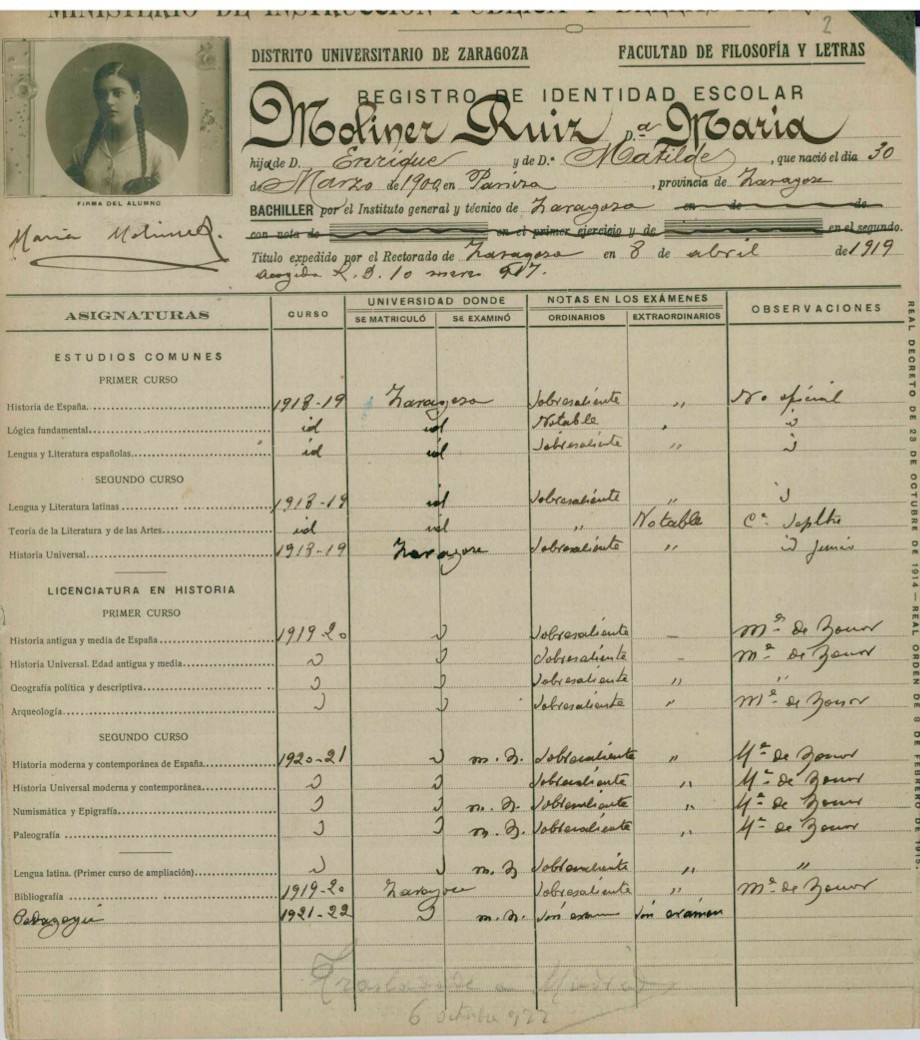 MINISTERIO DE INSTRUCCIÓN PÚBLICA Y BELLAS
2
DISTRITO UNIVERSITARIO DE ZARAGOZA FACULTAD DE FILOSOFÍA Y LETRAS
REGISTRO DE IDENTIDAD ESCOLAR
Moliner Ruiz D.ª María
hija de D. Enrique y de D.ª Matilde, que nació el día 30
de Marzo de 1900 en Paniza, provincia de Zaragoza
FIRMA DEL ALUMNO
María Moliner
BACHILLER por el Instituto general y técnico de Zaragoza en de de
con nota de en el primer ejercicio y de en el segundo.
Título expedido por el Rectorado de Zaragoza en 8 de abril de 1919
R. D. 10 917.
ASIGNATURAS CURSO UNIVERSIDAD DONDE NOTAS EN LOS EXÁMENES OBSERVACIONES
SE MATRICULÓ SE EXAMINÓ ORDINARIOS EXTRAORDINARIOS
ESTUDIOS COMUNES
PRIMER CURSO
Historia de España 1918-19 Zaragoza Sobresaliente " No oficial
Lógica fundamental id id Notable "
Lengua y Literatura españolas id id Sobresaliente "
SEGUNDO CURSO
Lengua y Literatura latinas 1918-19 id Sobresaliente "
Teoría de la Literatura y de las Artes id id " Notable
Historia Universal 1918-19 Zaragoza Sobresaliente " junio
LICENCIATURA EN HISTORIA
PRIMER CURSO
Historia antigua y media de España 1919-20 Sobresaliente — M.ª de Honor
Historia Universal. Edad antigua y media Sobresaliente — M.ª de Honor
Geografía política y descriptiva Sobresaliente " "
Arqueología Sobresaliente " M.ª de Honor
SEGUNDO CURSO
Historia moderna y contemporánea de España 1920-21 Sobresaliente " M.ª de Honor
Historia Universal moderna y contemporánea Sobresaliente " M.ª de Honor
Numismática y Epigrafía Sobresaliente " M.ª de Honor
Paleografía Sobresaliente " M.ª de Honor
Lengua latina. (Primer curso de ampliación) Sobresaliente " "
Bibliografía 1919-20 Zaragoza Sobresaliente " M.ª de Honor
Pedagogía 1921-22 Sin examen Sin examen
Trasladada a Madrid
6 octubre 922
REAL DECRETO DE 23 DE OCTUBRE DE 1914 — REAL ORDEN DE 9 DE FEBRERO DE 1915.